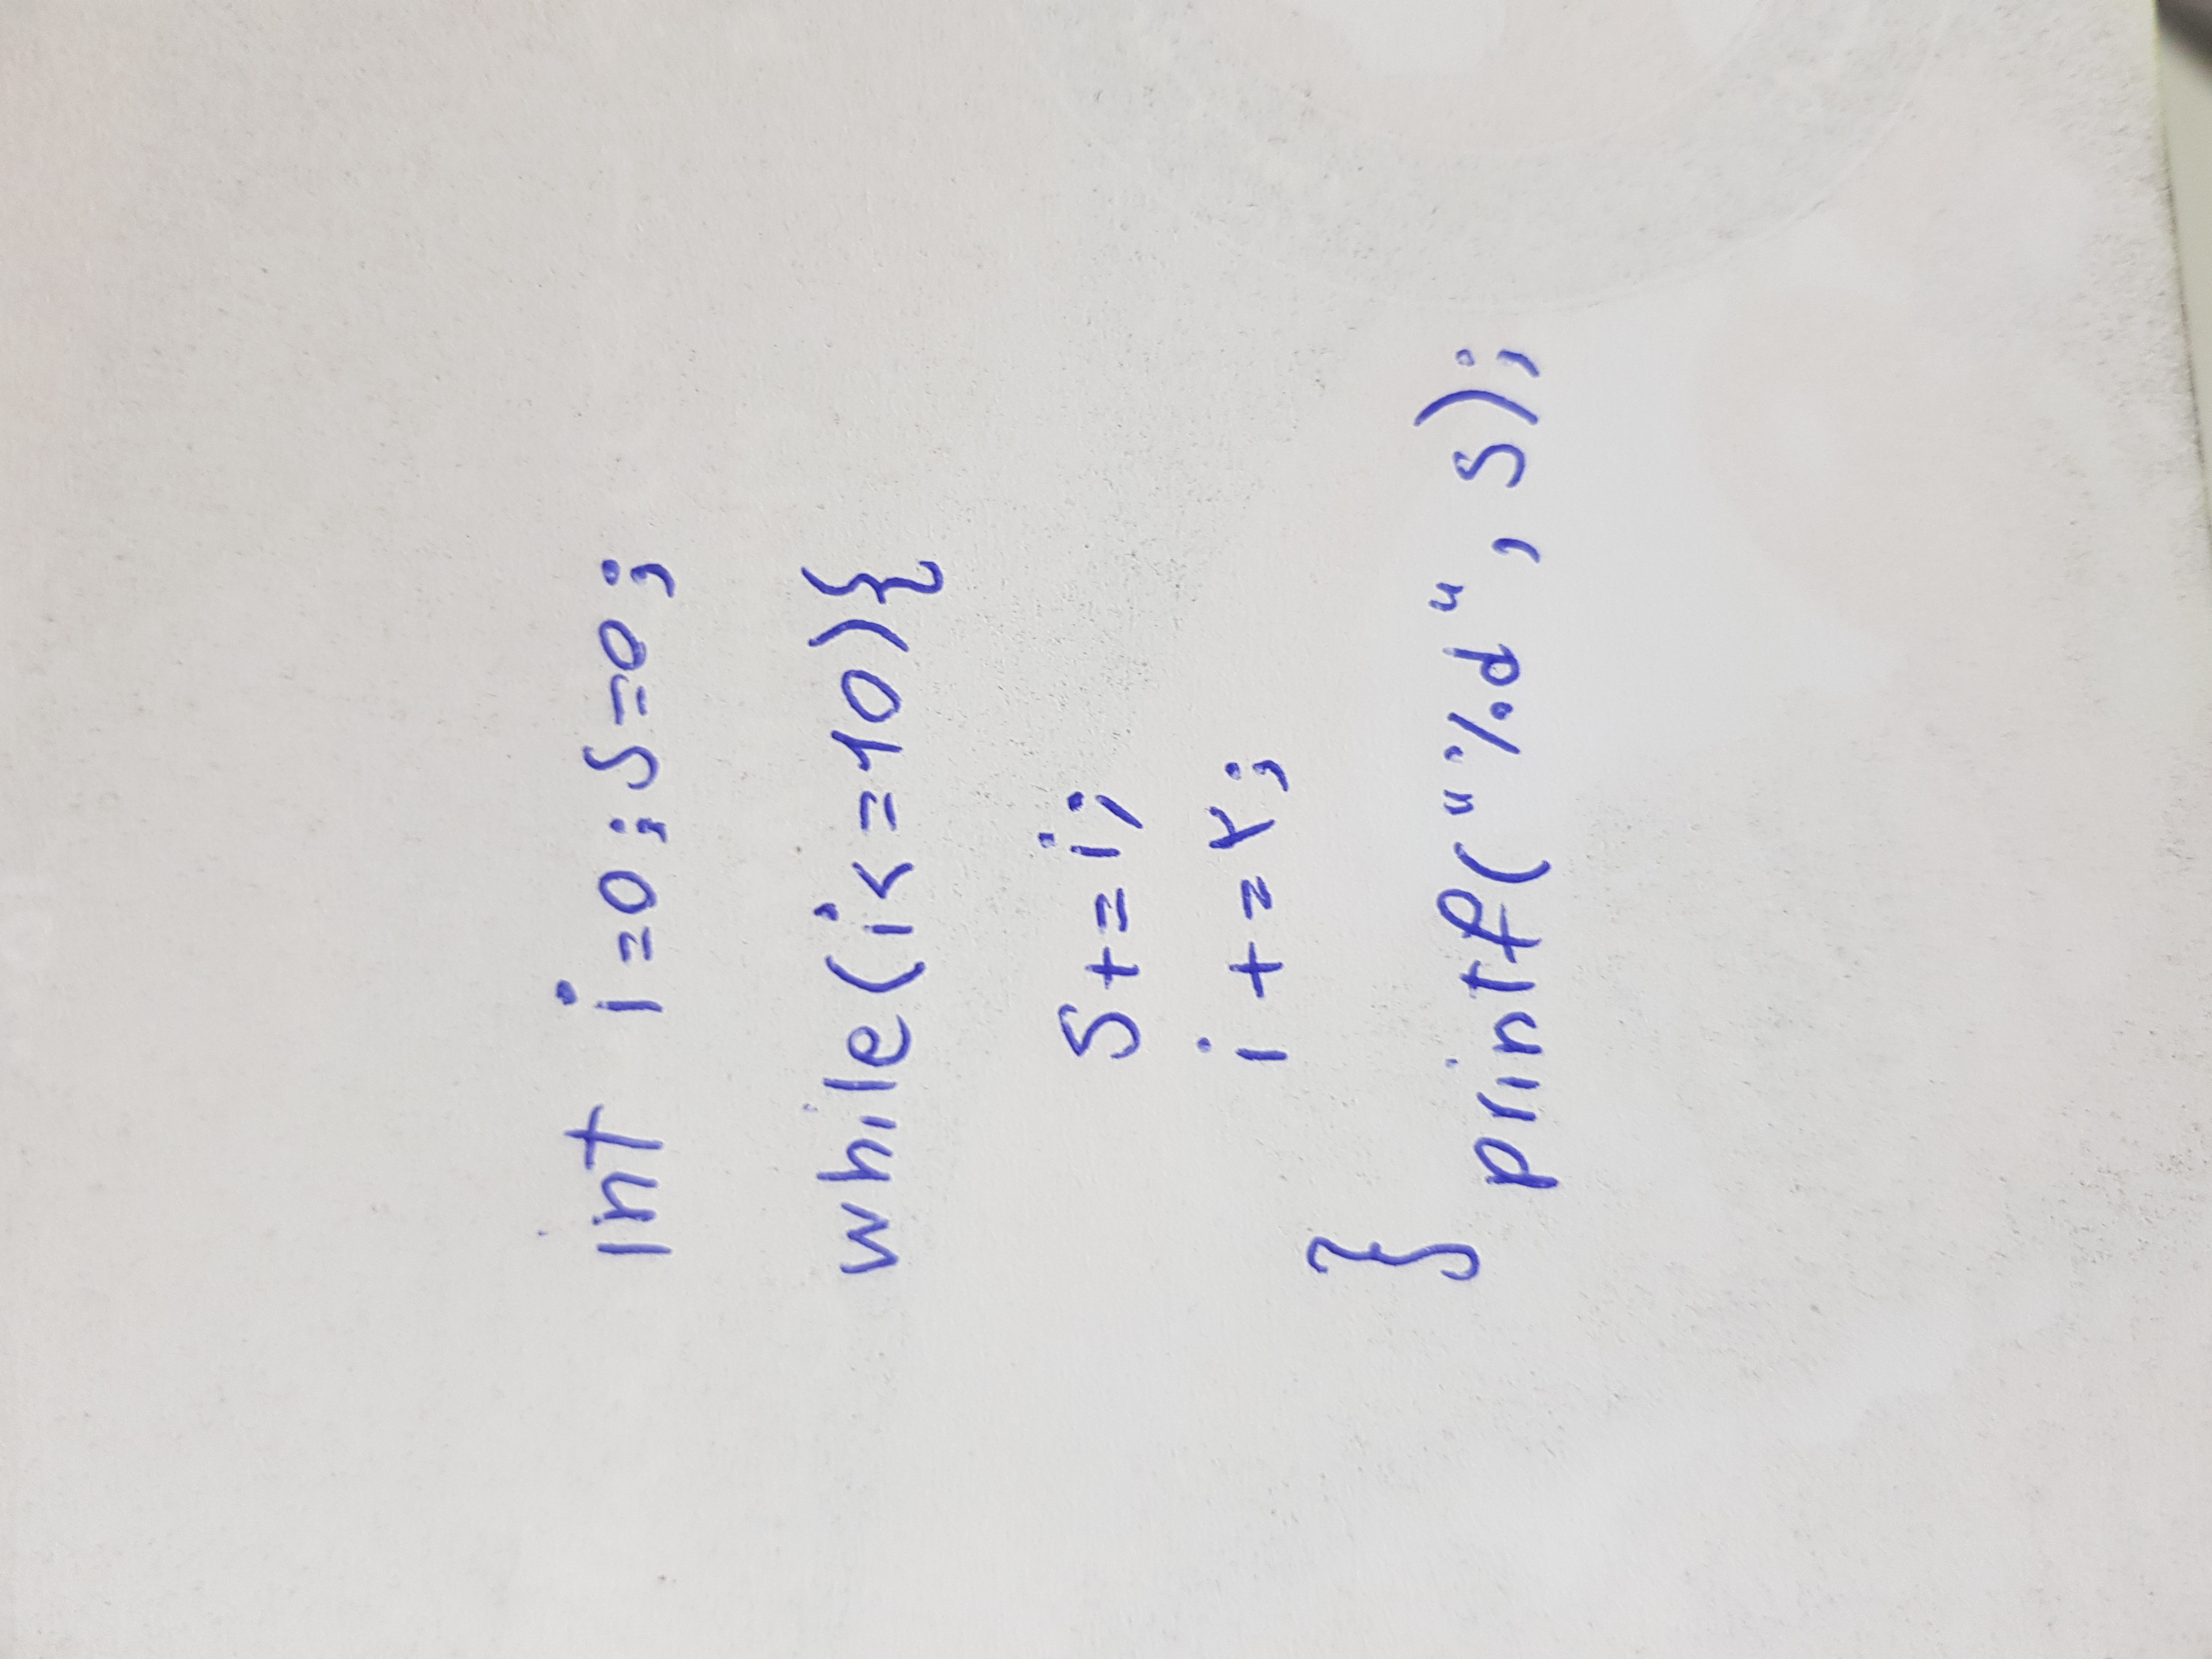 int i=0;s=0;
while(i<=10){
s+=i;
i+=۲;
}
printf("%d", s);